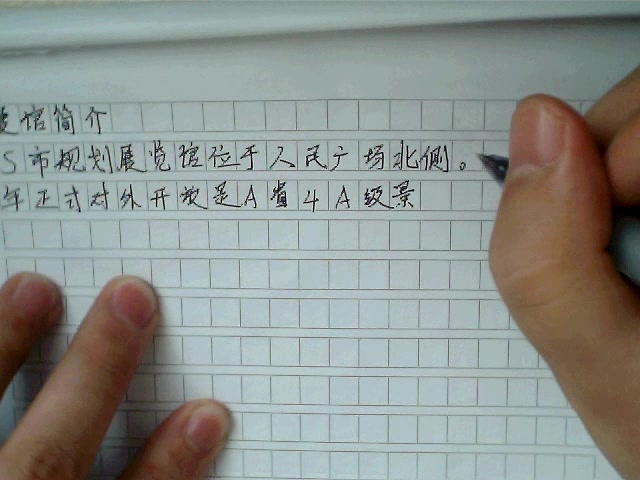 馆简介
S市规划展览馆位于人民广场北侧。
年正式对外开放是A省4A级景